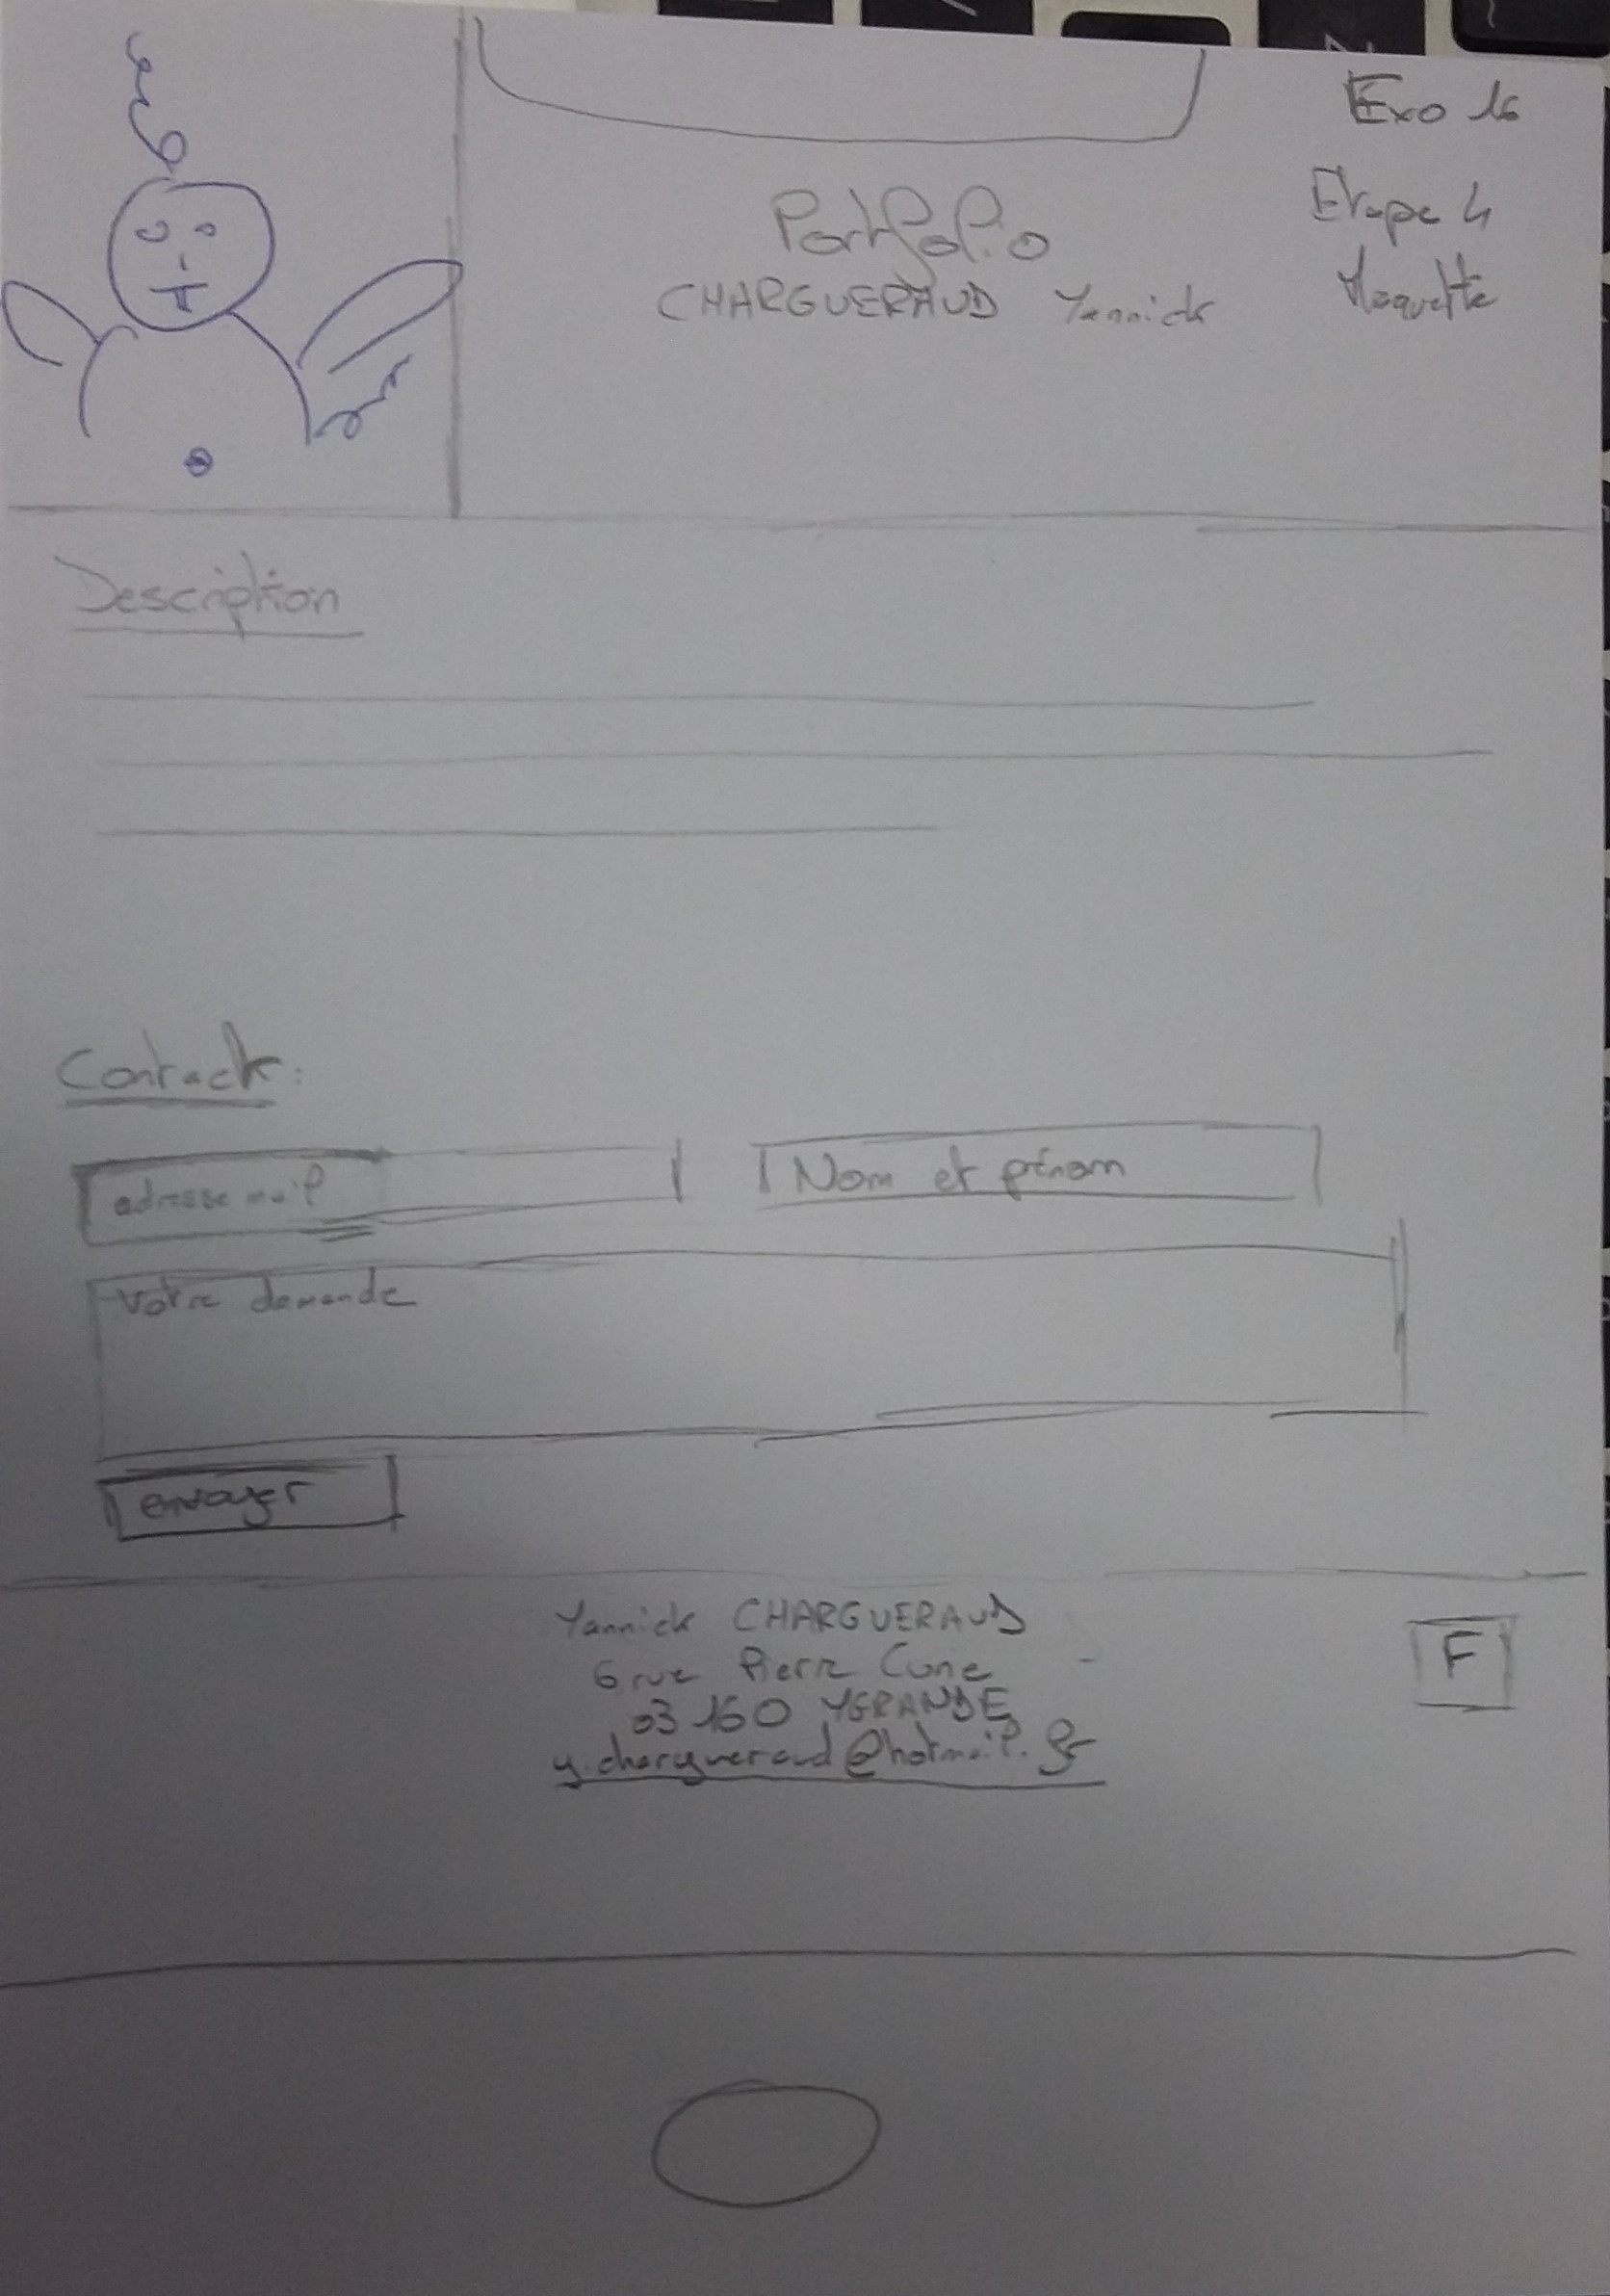 Exo 16
Etape 4
Maquette
Portfolio
CHARGUERAUD Yannick
Description
Contact :
adresse mail
Nom et prénom
Votre demande
envoyer
Yannick CHARGUERAUD
6 rue Pierre Curie
03 160 YGRANDE
y.chargueraud@hotmail.fr
F